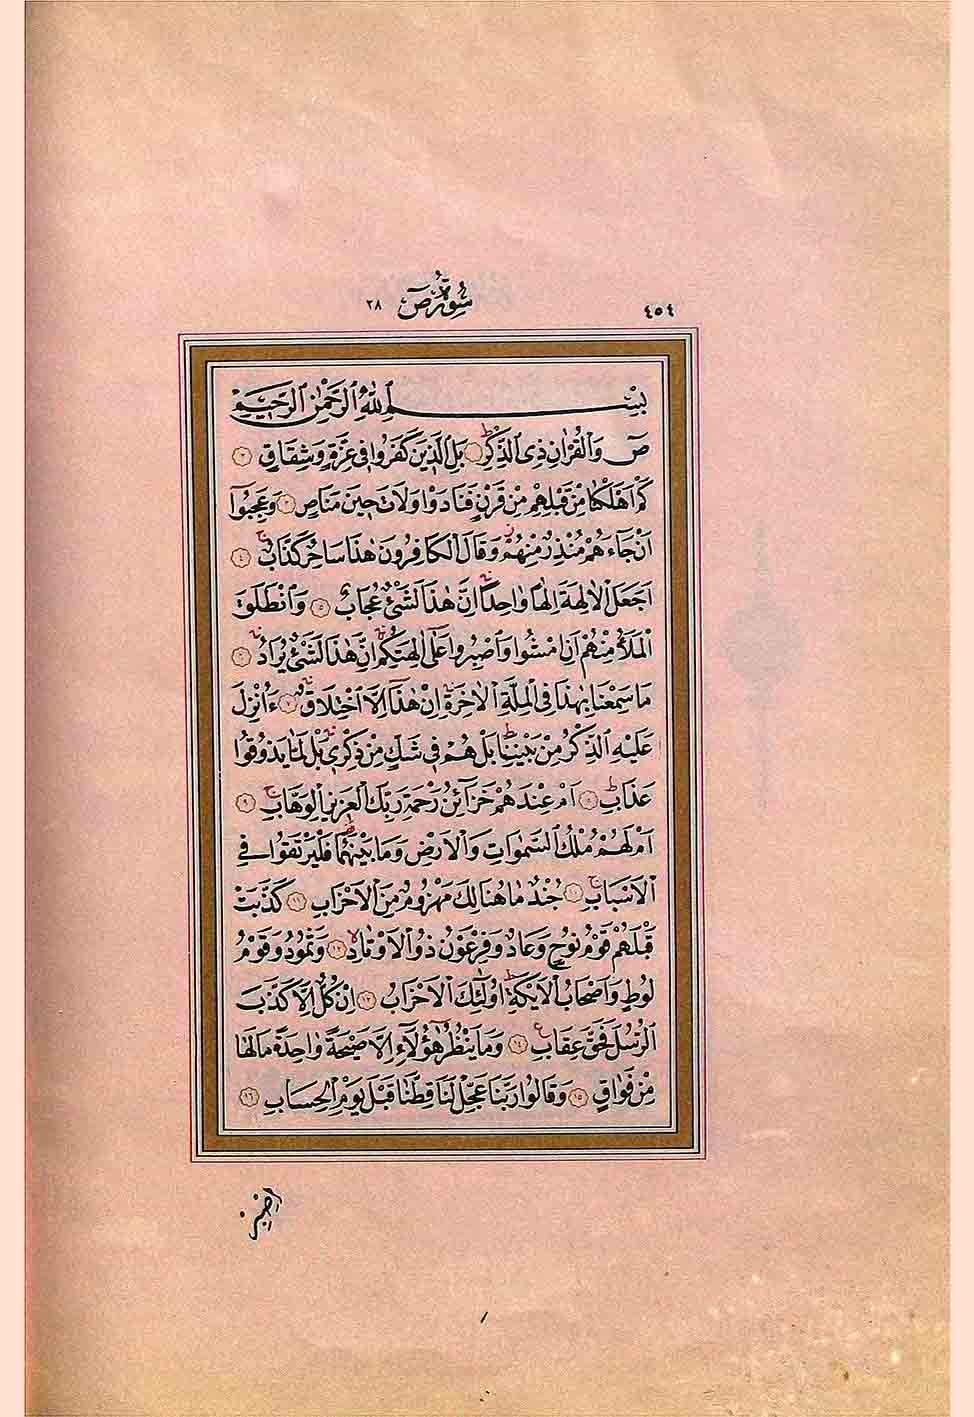 ٤٥٤ سُورَةُ صٓ ٣٨
بِسْمِ اللّٰهِ الرَّحْمٰنِ الرَّحٖيمِ
صٓ وَالْقُرْاٰنِ ذِي الذِّكْرِ ۝١ بَلِ الَّذٖينَ كَفَرُوا فٖي عِزَّةٍ وَشِقَاقٍ ۝٢
كَمْ اَهْلَكْنَا مِنْ قَبْلِهِمْ مِنْ قَرْنٍ فَنَادَوْا وَلَاتَ حٖينَ مَنَاصٍ ۝٣ وَعَجِبُٓوا
اَنْ جَٓاءَهُمْ مُنْذِرٌ مِنْهُمْ وَقَالَ الْكَافِرُونَ هٰذَا سَاحِرٌ كَذَّابٌ ۝٤
اَجَعَلَ الْاٰلِهَةَ اِلٰهًا وَاحِدًا اِنَّ هٰذَا لَشَيْءٌ عُجَابٌ ۝٥ وَانْطَلَقَ
الْمَلَأُ مِنْهُمْ اَنِ امْشُوا وَاصْبِرُوا عَلٰٓى اٰلِهَتِكُمْ اِنَّ هٰذَا لَشَيْءٌ يُرَادُ ۝٦
مَا سَمِعْنَا بِهٰذَا فِي الْمِلَّةِ الْاٰخِرَةِ اِنْ هٰذَٓا اِلَّا اخْتِلَاقٌ ۝٧ ءَاُنْزِلَ
عَلَيْهِ الذِّكْرُ مِنْ بَيْنِنَا بَلْ هُمْ فٖي شَكٍّ مِنْ ذِكْرٖي بَلْ لَمَّا يَذُوقُوا
عَذَابِ ۝٨ اَمْ عِنْدَهُمْ خَزَٓائِنُ رَحْمَةِ رَبِّكَ الْعَزٖيزِ الْوَهَّابِ ۝٩
اَمْ لَهُمْ مُلْكُ السَّمٰوَاتِ وَالْاَرْضِ وَمَا بَيْنَهُمَا فَلْيَرْتَقُوا فِي
الْاَسْبَابِ ۝١٠ جُنْدٌ مَا هُنَالِكَ مَهْزُومٌ مِنَ الْاَحْزَابِ ۝١١ كَذَّبَتْ
قَبْلَهُمْ قَوْمُ نُوحٍ وَعَادٌ وَفِرْعَوْنُ ذُو الْاَوْتَادِ ۝١٢ وَثَمُودُ وَقَوْمُ
لُوطٍ وَاَصْحَابُ الْاَيْكَةِ اُولٰٓئِكَ الْاَحْزَابُ ۝١٣ اِنْ كُلٌّ اِلَّا كَذَّبَ
الرُّسُلَ فَحَقَّ عِقَابِ ۝١٤ وَمَا يَنْظُرُ هٰٓؤُلَٓاءِ اِلَّا صَيْحَةً وَاحِدَةً مَا لَهَا
مِنْ فَوَاقٍ ۝١٥ وَقَالُوا رَبَّنَا عَجِّلْ لَنَا قِطَّنَا قَبْلَ يَوْمِ الْحِسَابِ ۝١٦
اِصْبِرْ